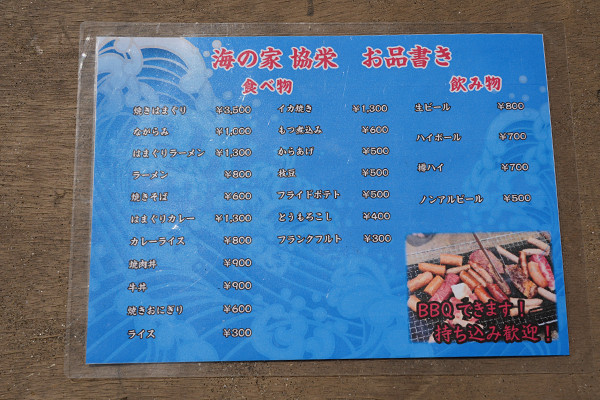 海の家 協栄 お品書き
食べ物
焼きはまぐり ¥3,500
ながらみ ¥1,000
はまぐりラーメン ¥1,300
ラーメン ¥800
焼きそば ¥600
はまぐりカレー ¥1,300
カレーライス ¥800
焼肉丼 ¥900
牛丼 ¥900
焼きおにぎり ¥600
ライス ¥300
イカ焼き ¥1,300
もつ煮込み ¥600
からあげ ¥500
枝豆 ¥500
フライドポテト ¥500
とうもろこし ¥400
フランクフルト ¥300
飲み物
生ビール ¥800
ハイボール ¥700
樽ハイ ¥700
ノンアルビール ¥500
BBQできます!
持ち込み歓迎!